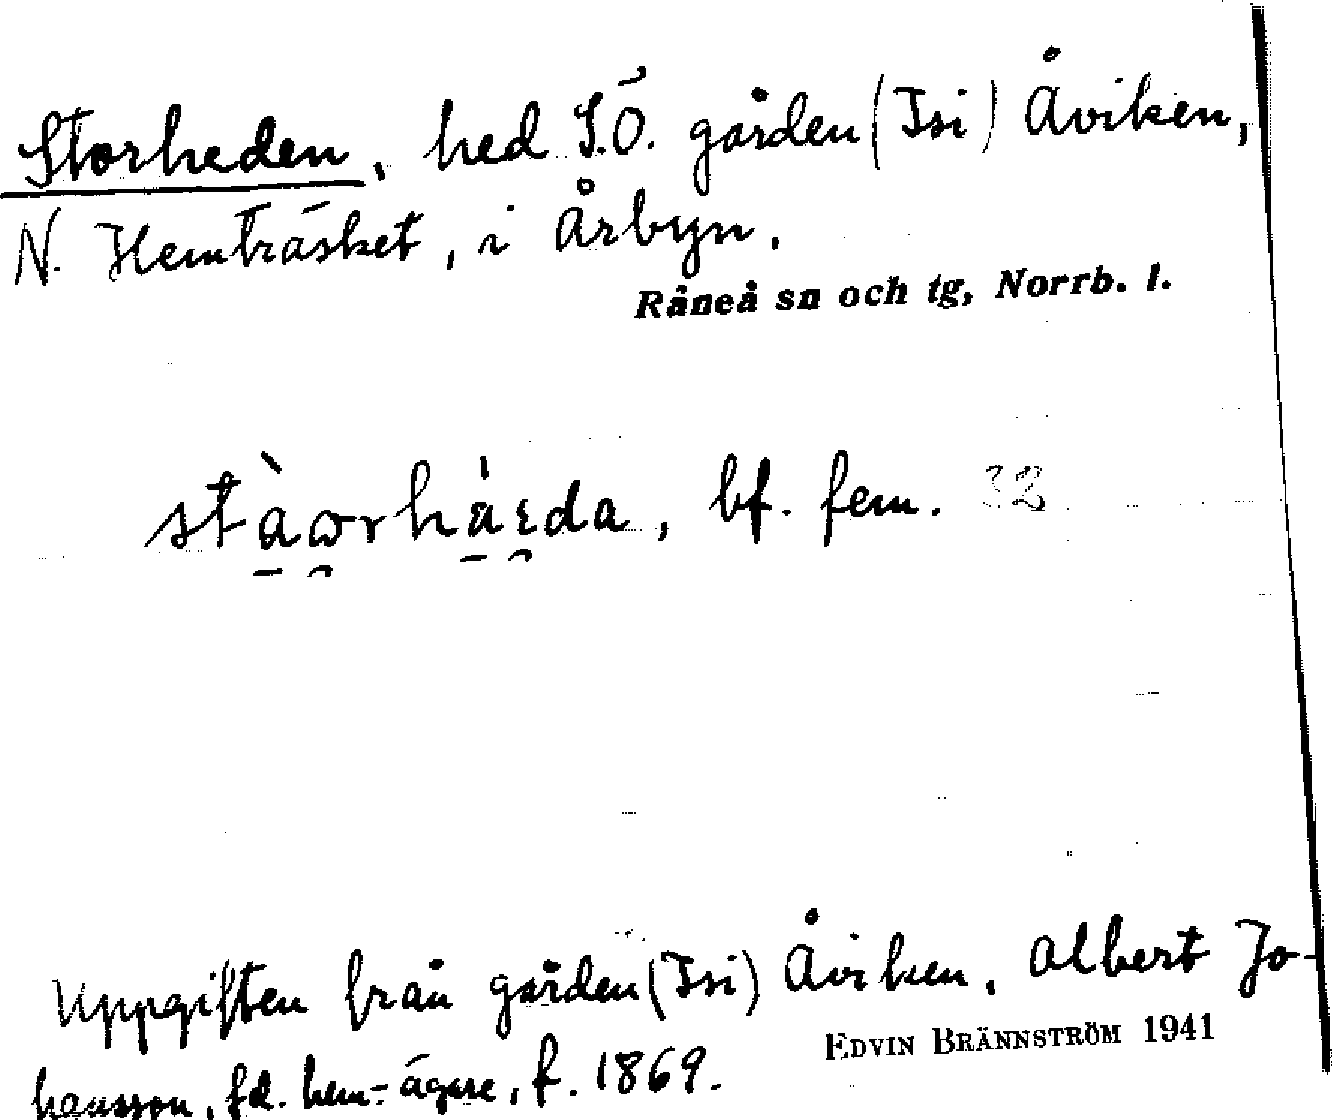 Storheden, hed S.Ö. gården (Isi) Åviken,
N. Hemträsket, i Årbyn.
Råneå sn och tg, Norrb. l.
stàωrhá̀ɛda, bf. fem. 32
Uppgiften från gården (Isi) Åviken, Albert Jo-
hansson, fd. hem.-ägare, f. 1869.
EDVIN BRÄNNSTRÖM 1941